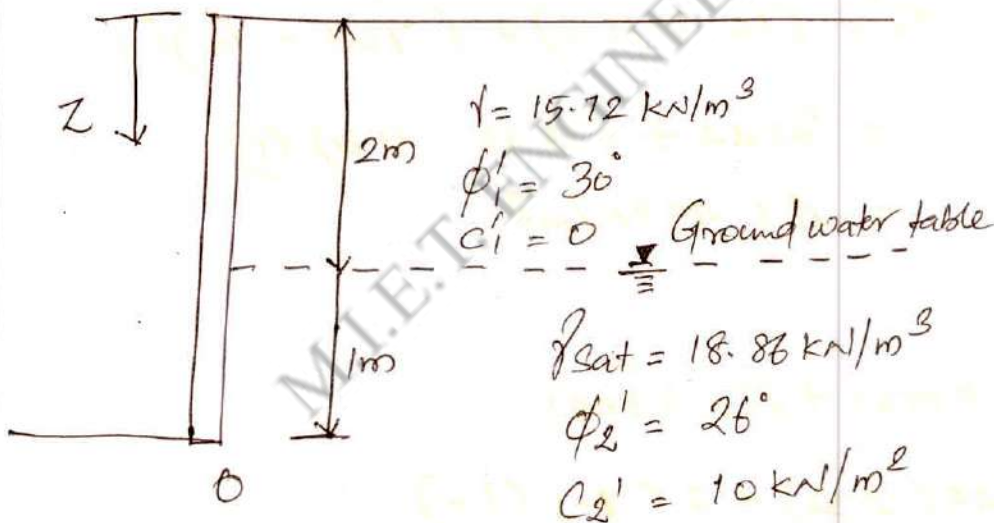 Z
2m
γ = 15.72 kN/m³
ϕ₁' = 30°
C₁' = 0
Ground water table
1m
γsat = 18.86 kN/m³
ϕ₂' = 26°
C₂' = 10 kN/m²
O
M.I.E.T. ENGINEE